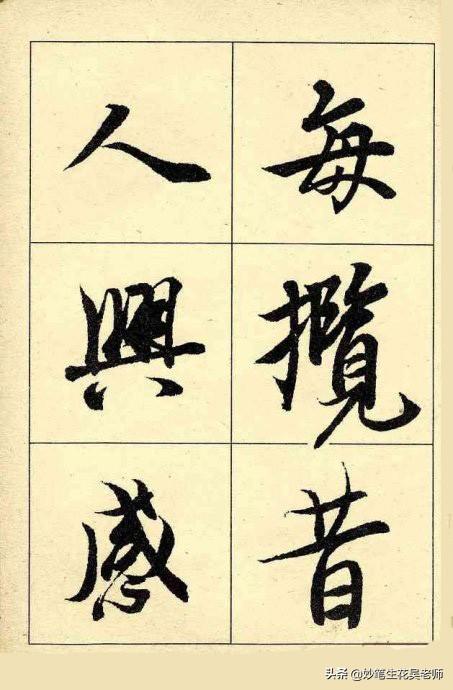 每攬昔
人興感
头条 @妙笔生花吴老师